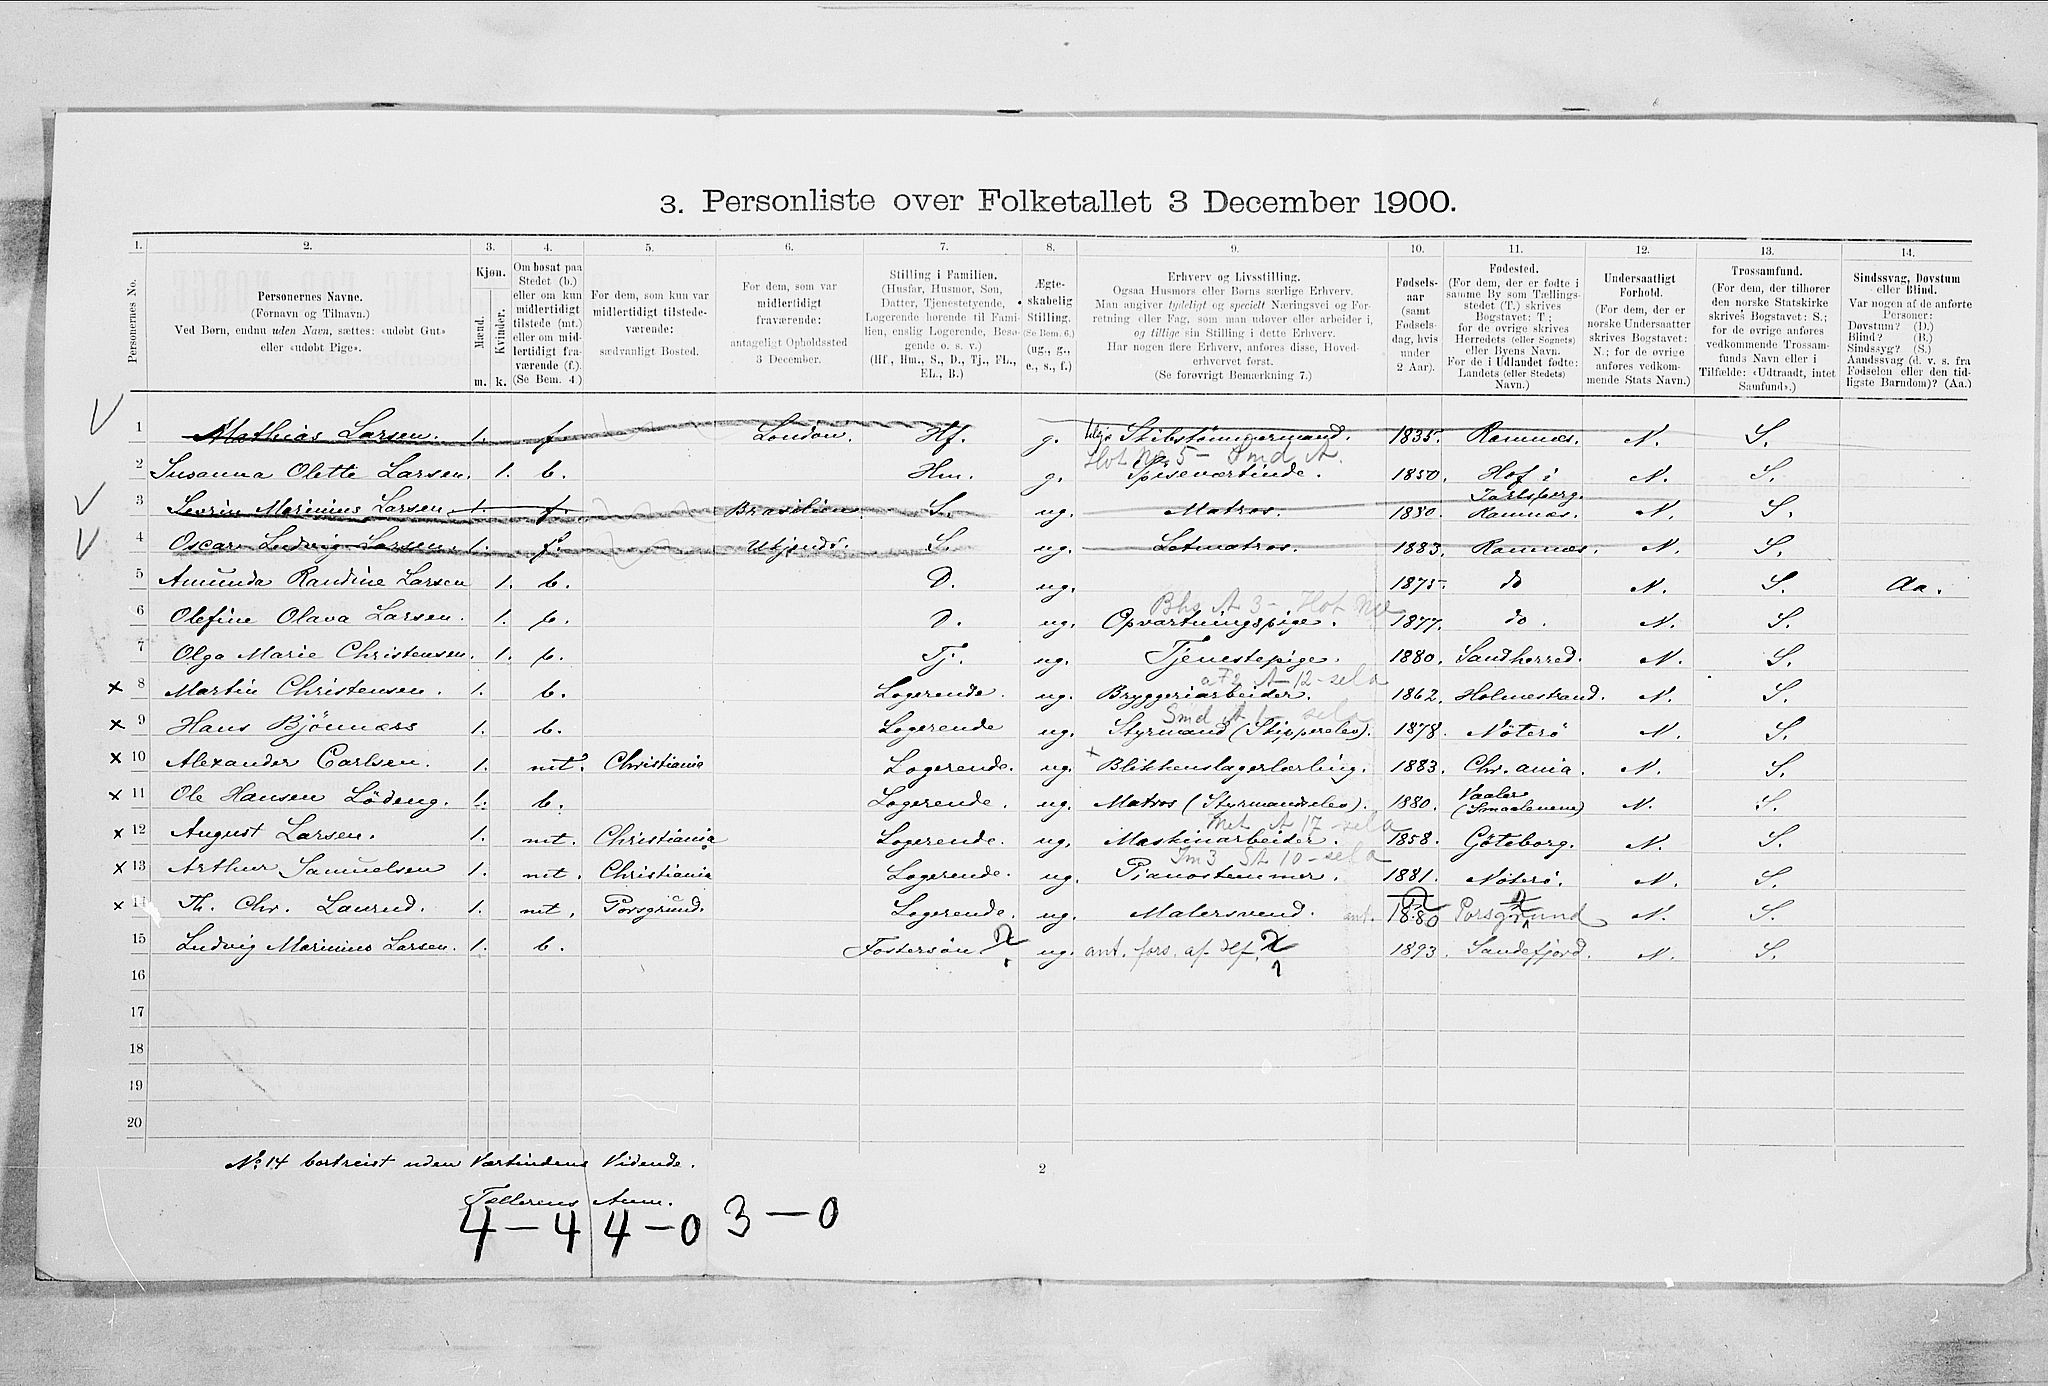 3. Personliste over Folketallet 3 December 1900.
1. 2. 3. 4. 5. 6. 7. 8. 9. 10. 11. 12. 13. 14.
Personernes No.
Personernes Navne.
(Fornavn og Tilnavn.)
Ved Børn, endnu uden Navn, sættes: «udøbt Gut»
eller «udøbt Pige».
Kjøn.
Mænd. Kvinder.
m. k.
Om bosat paa
Stedet (b.)
eller om kun
midlertidigt
tilstede (mt.)
eller om mid-
lertidigt fra-
værende (f.).
(Se Bem. 4.)
For dem, som kun var
midlertidigt tilstede-
værende:
sædvanligt Bosted.
For dem, som var
midlertidigt
fraværende:
antageligt Opholdssted
3 December.
Stilling i Familien.
(Husfar, Husmor, Søn,
Datter, Tjenestetyende,
Logerende hørende til Fami-
lien, enslig Logerende, Besø-
gende o. s. v.)
(Hf., Hm., S., D., Tj., FL.,
EL., B.)
Ægte-
skabelig
Stilling.
(Se Bem. 6.)
(ug., g.,
e., s., f.)
Erhverv og Livsstilling.
Ogsaa Husmors eller Børns særlige Erhverv.
Man angiver tydeligt og specielt Næringsvei og For-
retning eller Fag, som man udøver eller arbeider i,
og tillige sin Stilling i dette Erhverv.
Har nogen flere Erhverv, anføres disse, Hoved-
erhvervet først.
(Se forøvrigt Bemærkning 7.)
Fødsels-
aar
(samt
Fødsels-
dag, hvis
under
2 Aar).
Fødested.
(For dem, der er fødte i
samme By som Tællings-
stedet (T.) skrives
Bogstavet: T.;
for de øvrige skrives
Herredets (eller Sognets)
eller Byens Navn.
For de i Udlandet fødte:
Landets (eller Stedets)
Navn.)
Undersaatligt
Forhold.
(For dem, der er
norske Undersaatter
skrives Bogstavet:
N.; for de øvrige
anføres vedkom-
mende Stats Navn.)
Trossamfund.
(For dem, der tilhører
den norske Statskirke
skrives Bogstavet: S.;
for de øvrige anføres
vedkommende Trossam-
funds Navn eller i
Tilfælde: «Udtraadt, intet
Samfund».)
Sindssvag, Døvstum
eller Blind.
Var nogen af de anførte
Personer:
Døvstum? (D.)
Blind? (B.)
Sindssyg? (S.)
Aandssvag (d. v. s. fra
Fødselen eller den tid-
ligste Barndom)? (Aa.)
1 Mathias Larsen. 1. f. London. Hf. g. Skibstømmermand. 1835. Ramnes. N. S.
2 Susanna Olette Larsen. 1. b. Hm. g. Spiseværtinde. 1850. Hof i Jarlsberg. N. S.
3 Severin Marinius Larsen. 1. f. Brasilien S. ug. Matros. 1880. Ramnes. N. S.
4 Oscar Ludvig Larsen. 1. f. Ukjendt. S. ug. Letmatros. 1883. Ramnes. N. S.
5 Amunda Randine Larsen 1. b. D. ug. 1875. do N. S. Aa.
6 Olefine Olava Larsen. 1. b. D. ug. Opvartningspige. 1877. do. N. S.
7 Olga Marie Christensen. 1. b. Tj. ug. Tjenestepige. 1880. Sandherred. N. S.
x 8 Martin Christensen. 1. b. Logerende. ug. Bryggeriarbeider. 1862. Holmestrand. N. S.
x 9 Hans Bjönnæss 1. b. Logerende ug. Styrmand (Skipperelev). 1878. Nöterö N. S.
x 10 Alexander Carlsen. 1. mt. Christiania Logerende. ug. Blikkenslagerlærling. 1883. Chr.ania. N. S.
x 11 Ole Hansen Lödeng. 1. b. Logerende. ug. Matros (Styrmandselev). 1880. Vaaler (Smaalenene) N. S.
x 12 August Larsen. 1. mt. Christiania Logerende. ug. Maskinarbeider. 1858. Göteborg. N. S.
x 13 Arthur Samuelsen 1. mt. Christiania Logerende. ug. Pianostemmer. 1881. Nöterö. N. S.
x 14 Th. Chr. Laurud. 1. mt. Porsgrund. Logerende. ug. Malersvend. ant. 1880 Porsgrund N. S.
15 Ludvig Marinius Larsen. 1. b. Fostersön ug. ant. fors. af Hf. 1893. Sandefjord. N. S.
16
17
18
19
20
No 14 bortreist uden Værtindens Vidende.
2
Tællerens Anm.
4-4 4-0 3-0